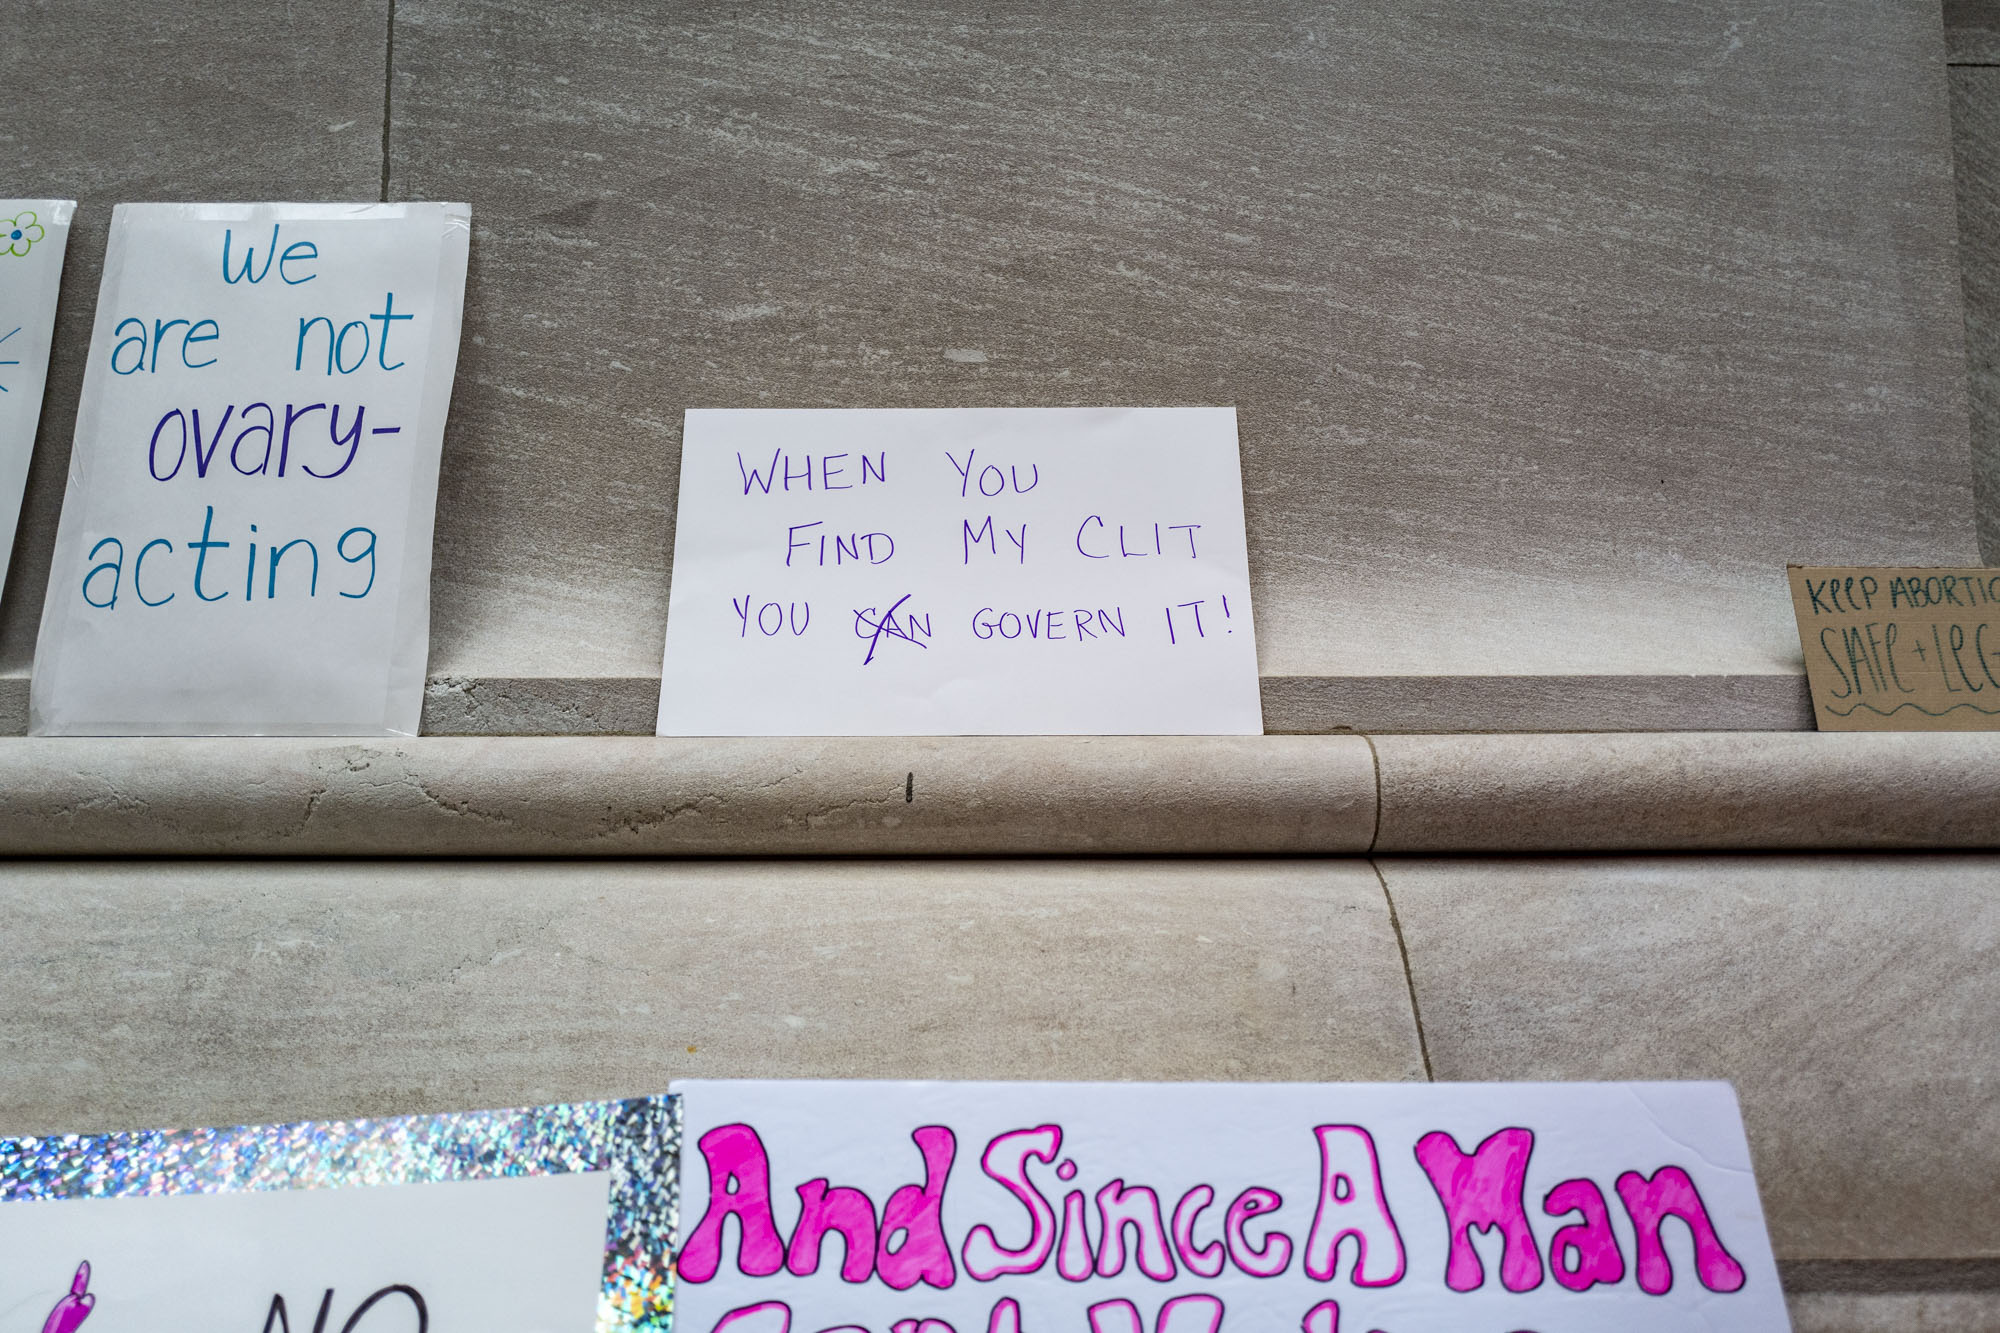 We
are not
ovary-
acting
WHEN YOU
FIND MY CLIT
YOU CAN GOVERN IT!
KEEP ABORTIO
SAFE + LEG
NO
And Since A Man